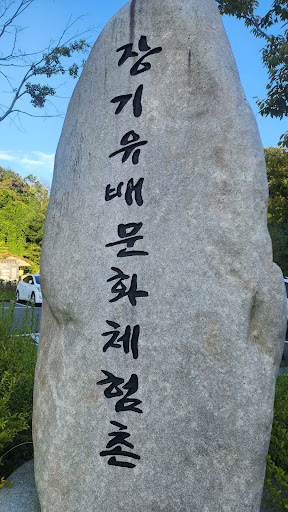 장기유배문화체험촌